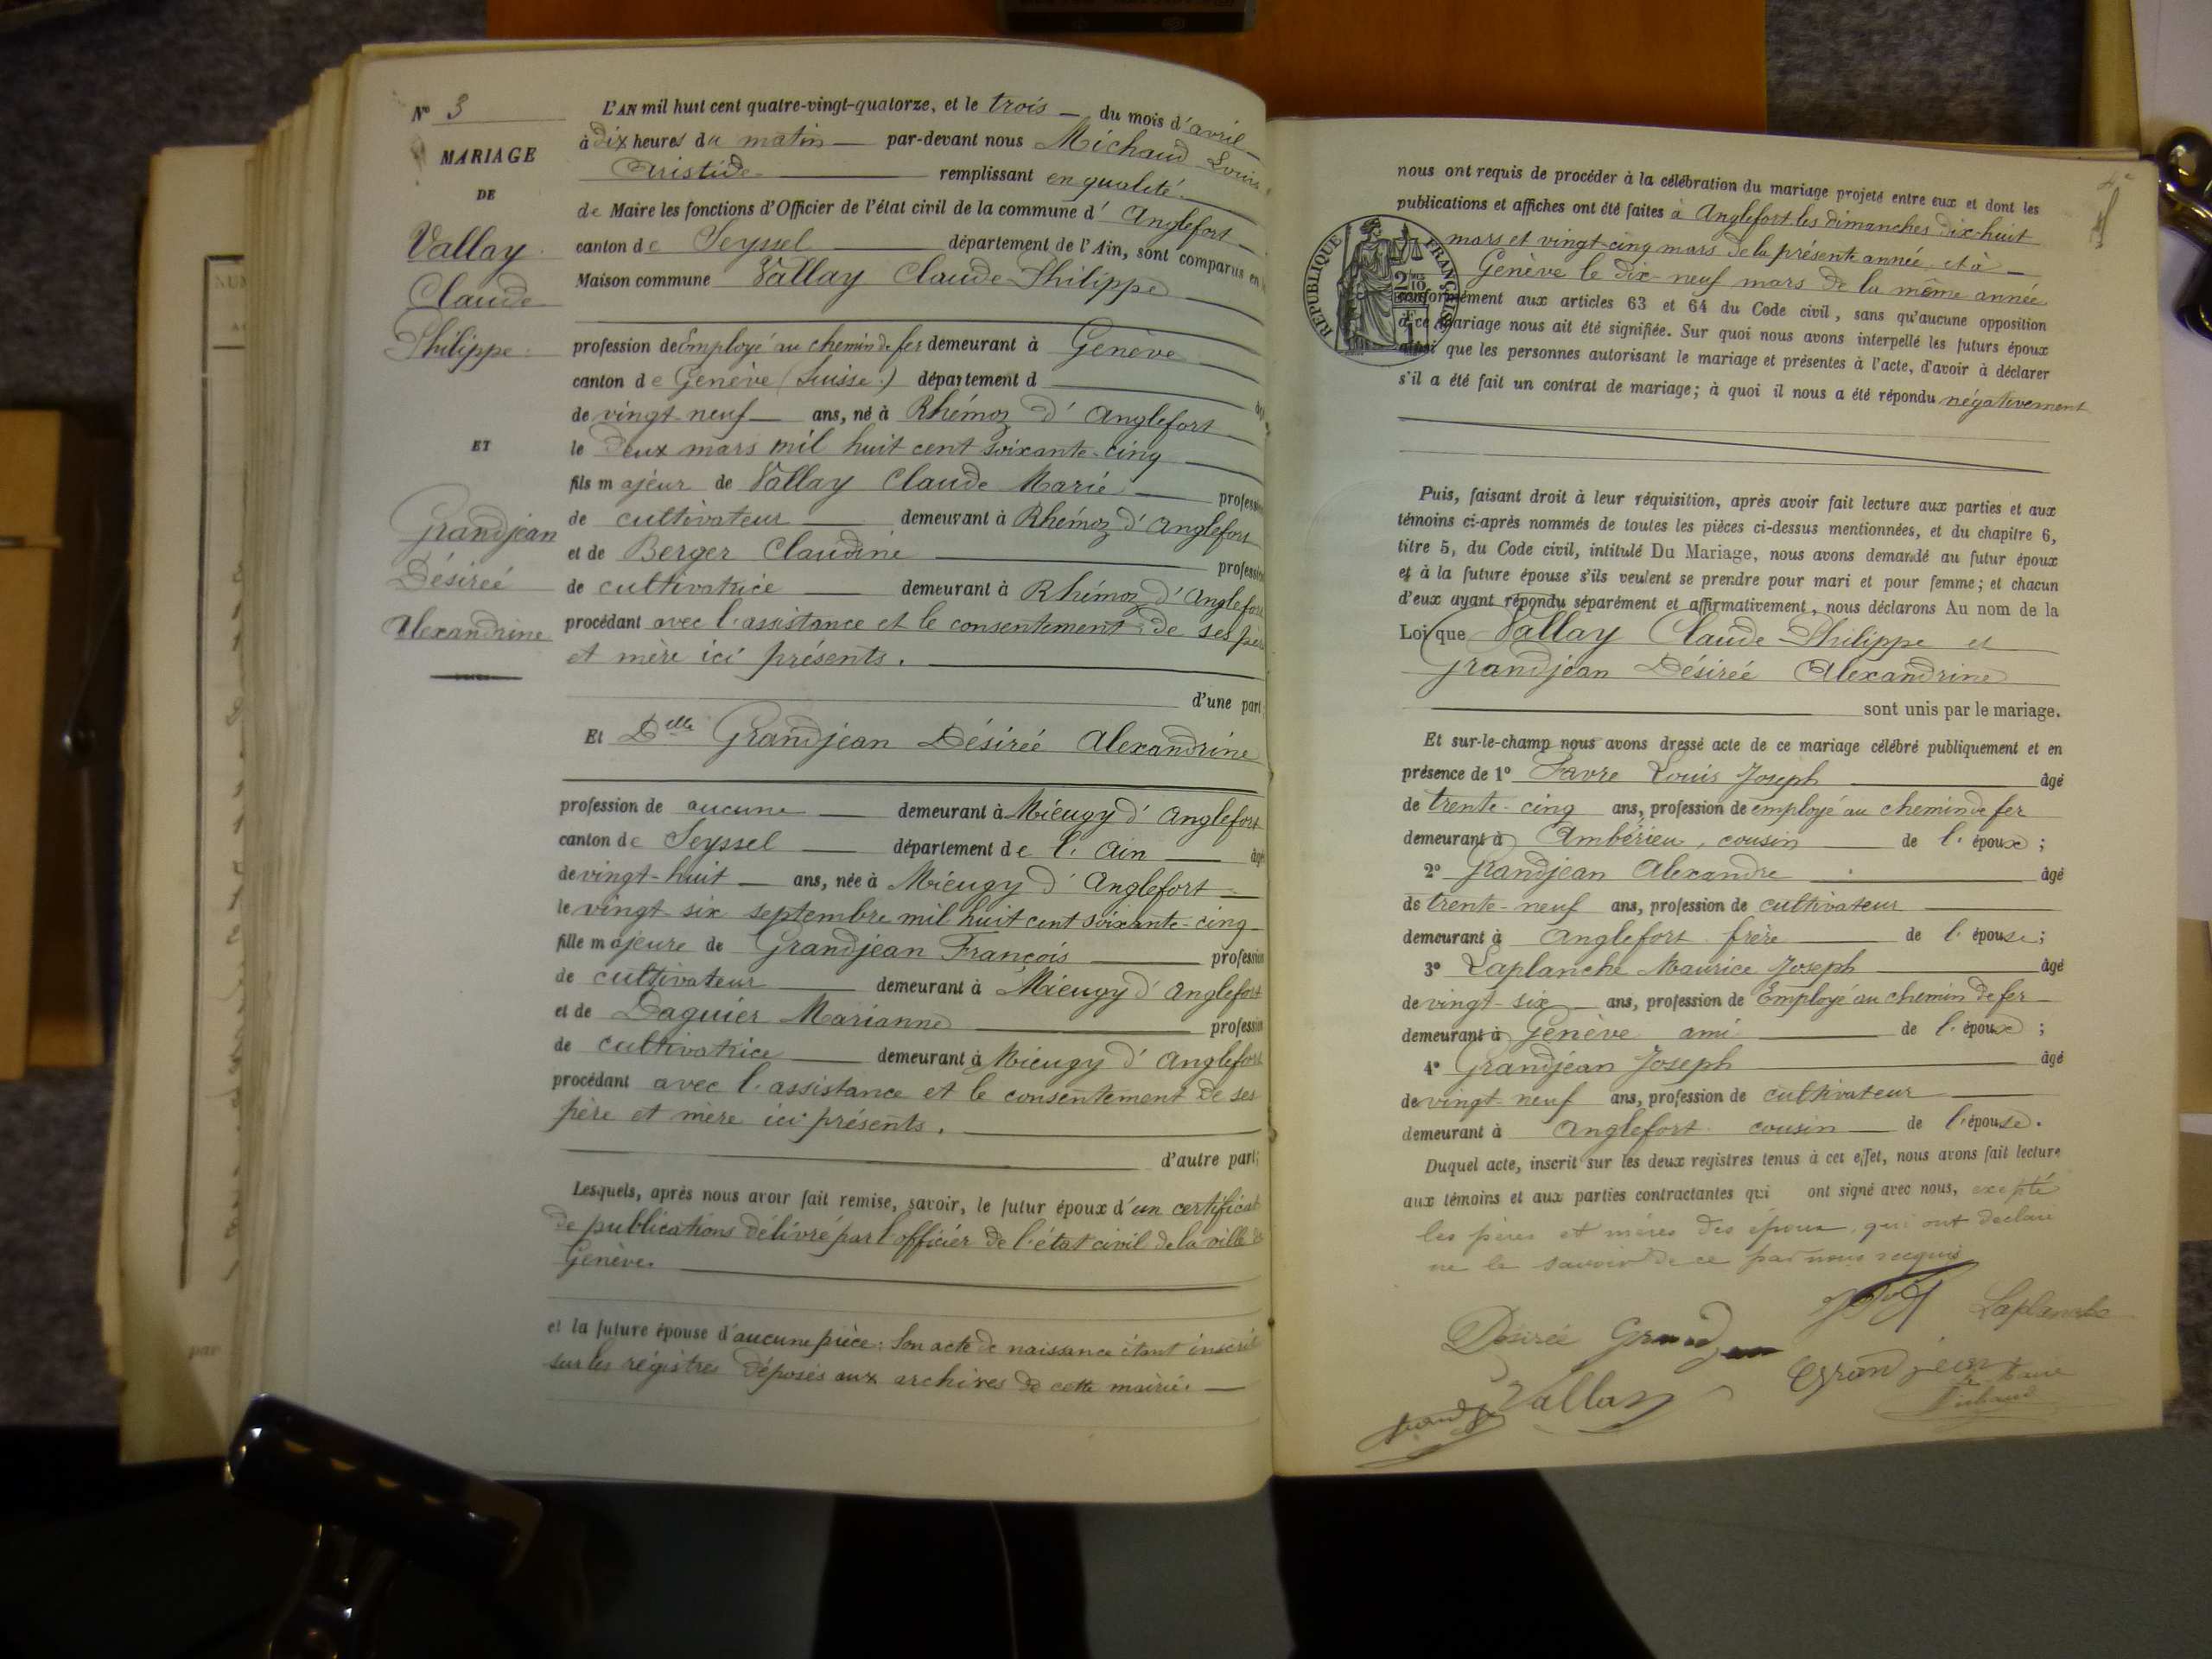 N° 3
MARIAGE
DE
Vallay
Claude
Philippe
ET
Grandjean
Désirée
Alexandrine
L'AN mil huit cent quatre-vingt-quatorze, et le trois du mois d'avril
à dix heures du matin par-devant nous Michaud Louis
Aristide remplissant en qualité
de Maire les fonctions d'Officier de l'état civil de la commune d'Anglefort
canton de Seyssel département de l'Ain, sont comparus en
Maison commune Vallay Claude Philippe
profession de Employé au chemin de fer demeurant à Genève
canton de Genève (Suisse) département d
de vingt neuf ans, né à Rhémoz d'Anglefort
le deux mars mil huit cent soixante-cinq
fils majeur de Vallay Claude Marie profession
de cultivateur demeurant à Rhémoz d'Anglefort
et de Berger Claudine profession
de cultivatrice demeurant à Rhémoz d'Anglefort
procédant avec l'assistance et le consentement de ses père
et mère ici présents.
d'une part
Et Delle Grandjean Désirée Alexandrine
profession de aucune demeurant à Mieugy d'Anglefort
canton de Seyssel département de l'Ain âgé
de vingt-huit ans, née à Mieugy d'Anglefort
le vingt six septembre mil huit cent soixante-cinq
fille majeure de Grandjean François profession
de cultivateur demeurant à Mieugy d'Anglefort
et de Daguier Marianne profession
de cultivatrice demeurant à Mieugy d'Anglefort
procédant avec l'assistance et le consentement de ses
père et mère ici présents.
d'autre part;
Lesquels, après nous avoir fait remise, savoir, le futur époux d'un certificat
de publications délivré par l'officier de l'état civil de la ville de
Genève.
et la future épouse d'aucune pièce: Son acte de naissance étant inscrit
sur les régistres déposés aux archives de cette mairie
nous ont requis de procéder à la célébration du mariage projeté entre eux et dont les
publications et affiches ont été faites à Anglefort les dimanches dix-huit
mars et vingt-cinq mars de la présente année et à
Genève le dix-neuf mars de la même année
conformément aux articles 63 et 64 du Code civil, sans qu'aucune opposition
à ce mariage nous ait été signifiée. Sur quoi nous avons interpellé les futurs époux
ainsi que les personnes autorisant le mariage et présentes à l'acte, d'avoir à déclarer
s'il a été fait un contrat de mariage; à quoi il nous a été répondu négativement
RÉPUBLIQUE FRANÇAISE
Puis, faisant droit à leur réquisition, après avoir fait lecture aux parties et aux
témoins ci-après nommés de toutes les pièces ci-dessus mentionnées, et du chapitre 6,
titre 5, du Code civil, intitulé Du Mariage, nous avons demandé au futur époux
et à la future épouse s'ils veulent se prendre pour mari et pour femme; et chacun
d'eux ayant répondu séparément et affirmativement, nous déclarons Au nom de la
Loi que Vallay Claude Philippe et
Grandjean Désirée Alexandrine
sont unis par le mariage.
Et sur-le-champ nous avons dressé acte de ce mariage célébré publiquement et en
présence de 1° Favre Louis Joseph âgé
de trente-cinq ans, profession de employé au chemin de fer
demeurant à Ambérieu, cousin de l'époux;
2° Grandjean Alexandre âgé
de trente-neuf ans, profession de cultivateur
demeurant à Anglefort frère de l'épouse;
3° Laplanche Maurice Joseph âgé
de vingt-six ans, profession de Employé au chemin de fer
demeurant à Genève ami de l'époux;
4° Grandjean Joseph âgé
de vingt-neuf ans, profession de cultivateur
demeurant à Anglefort cousin de l'épouse.
Duquel acte, inscrit sur les deux registres tenus à cet effet, nous avons fait lecture
aux témoins et aux parties contractantes qui ont signé avec nous, excepté
les pères et mères des époux, qui ont déclaré
ne le savoir de ce par nous requis
Désirée Grandjean
Laplanche
Vallay
Grandjean
Le Maire
Michaud